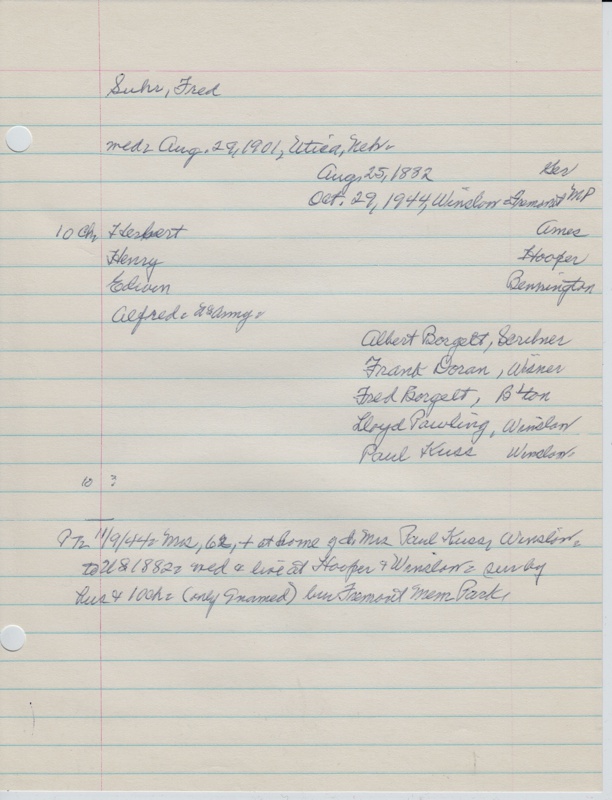 Suhr, Fred
med= Aug. 29, 1901, Utica, Nebr=
Aug 25, 1882 Ger
Oct. 29, 1944, Winslow = Fremont MP
10 Ch= Herbert Ames
Henry Hooper
Edwin Bennington
Alfred= US Army=
Albert Borgelt, Scribner
Frank Doran, Wisner
Fred Borgelt, B'ton
Lloyd Pawling, Winslow
Paul Kuss Winslow=
10 ?
11/9/44= Mrs, 62, + at home of d= Mrs Paul Kuss, Winslow=
to US 1882= med & live at Hooper & Winslow= sur by
hus & 10 ch= (only 9 named) bur Fremont Mem Park,